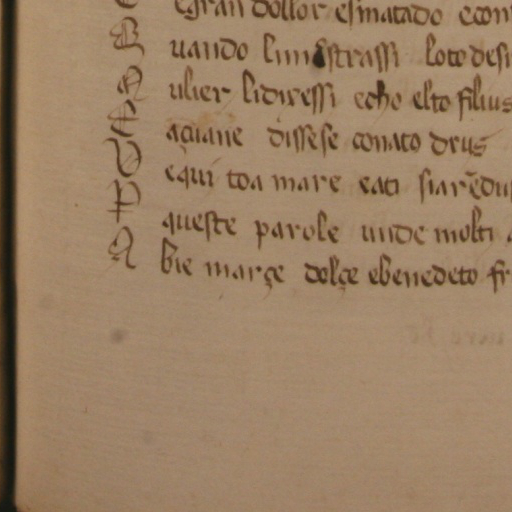 E gran dollor esmatado econ
Q uando lun strassi loto desi
M ulier lidiressi echo elto filius
E açuane dissese conato deus
V equi toa mare eati siaredu
P queste parole unde molti
A bie marçe dolçe ebenedeto fr